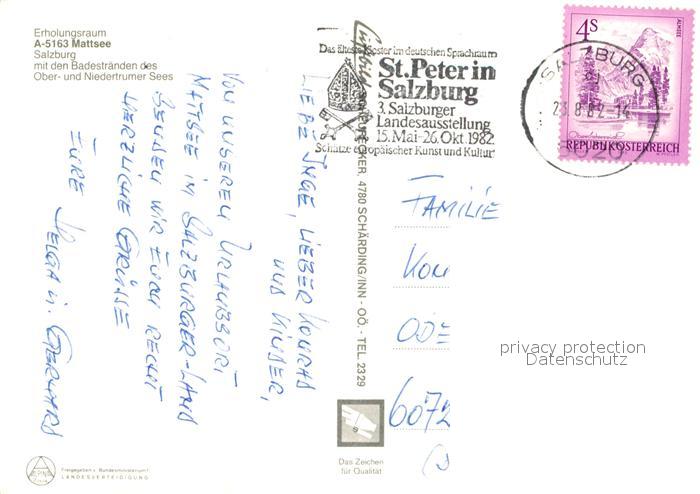 Erholungsraum
A-5163 Mattsee
Salzburg
mit den Badestränden des
Ober- und Niedertrumer Sees
LIEBE INGE, LIEBER KONRAD
UND KINDER,
VON UNSEREM URLAUBSORT
MATTSEE IM SALZBURGER-LAND
SENDEN WIR EUCH RECHT
HERZLICHE GRÜSSE
EURE HELGA U. GERHARD
ALPINA
Freigegeben v. Bundesministerium f.
LANDESVERTEIDIGUNG
4780 SCHÄRDING/INN - OÖ., TEL. 23 29
Das Zeichen
für Qualität
Das älteste Kloster im deutschen Sprachraum
St. Peter in
Salzburg
3. Salzburger
Landesausstellung
15. Mai - 26. Okt. 1982
Schätze europäischer Kunst und Kultur
SALZBURG
23.8.82-14
5020
4S
ALMSEE
REPUBLIK ÖSTERREICH
FAMILIE
KON
ODE
6072
privacy protection
Datenschutz